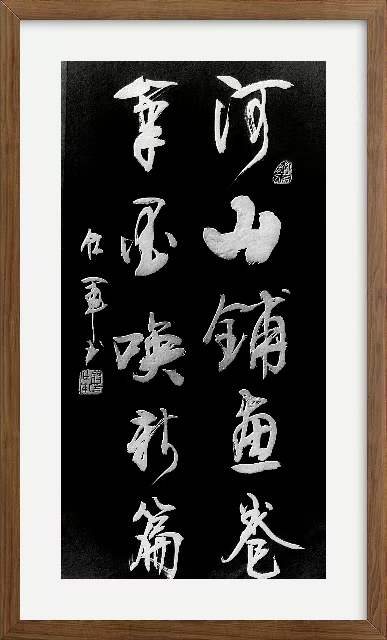 河山铺画卷
笔墨唤新篇